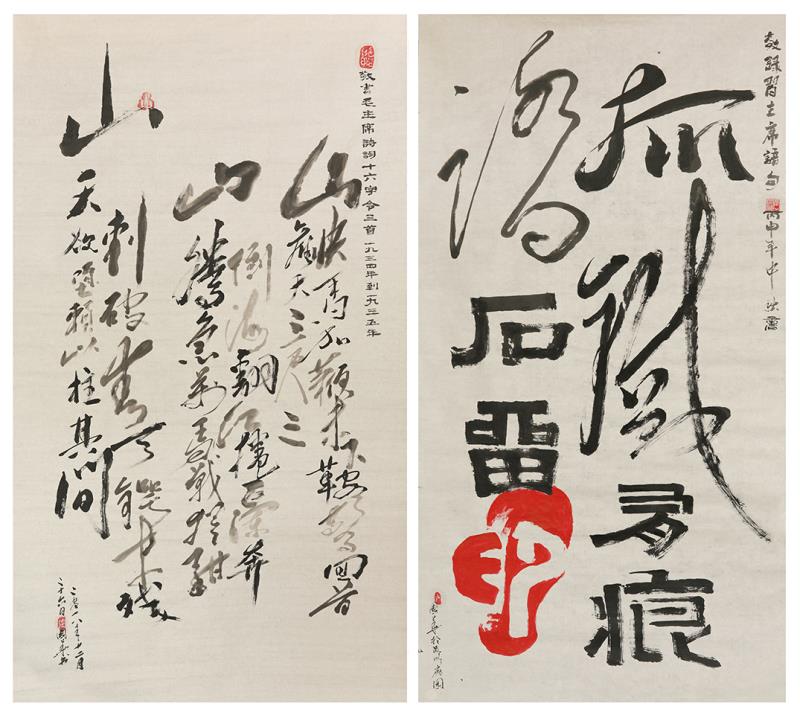 敬書毛主席詩詞十六字令三首一九三四年到一九三五年
山快馬加鞭未下鞍驚回首
離天三尺三
山
倒海翻江捲巨瀾奔
騰急萬馬戰猶酣
山
刺破青天鍔未殘
天欲墮賴以柱其間
二〇一八年十二月
二十六日
敬録習主席語句
丙申年中
抓鐵有痕
踏石留印